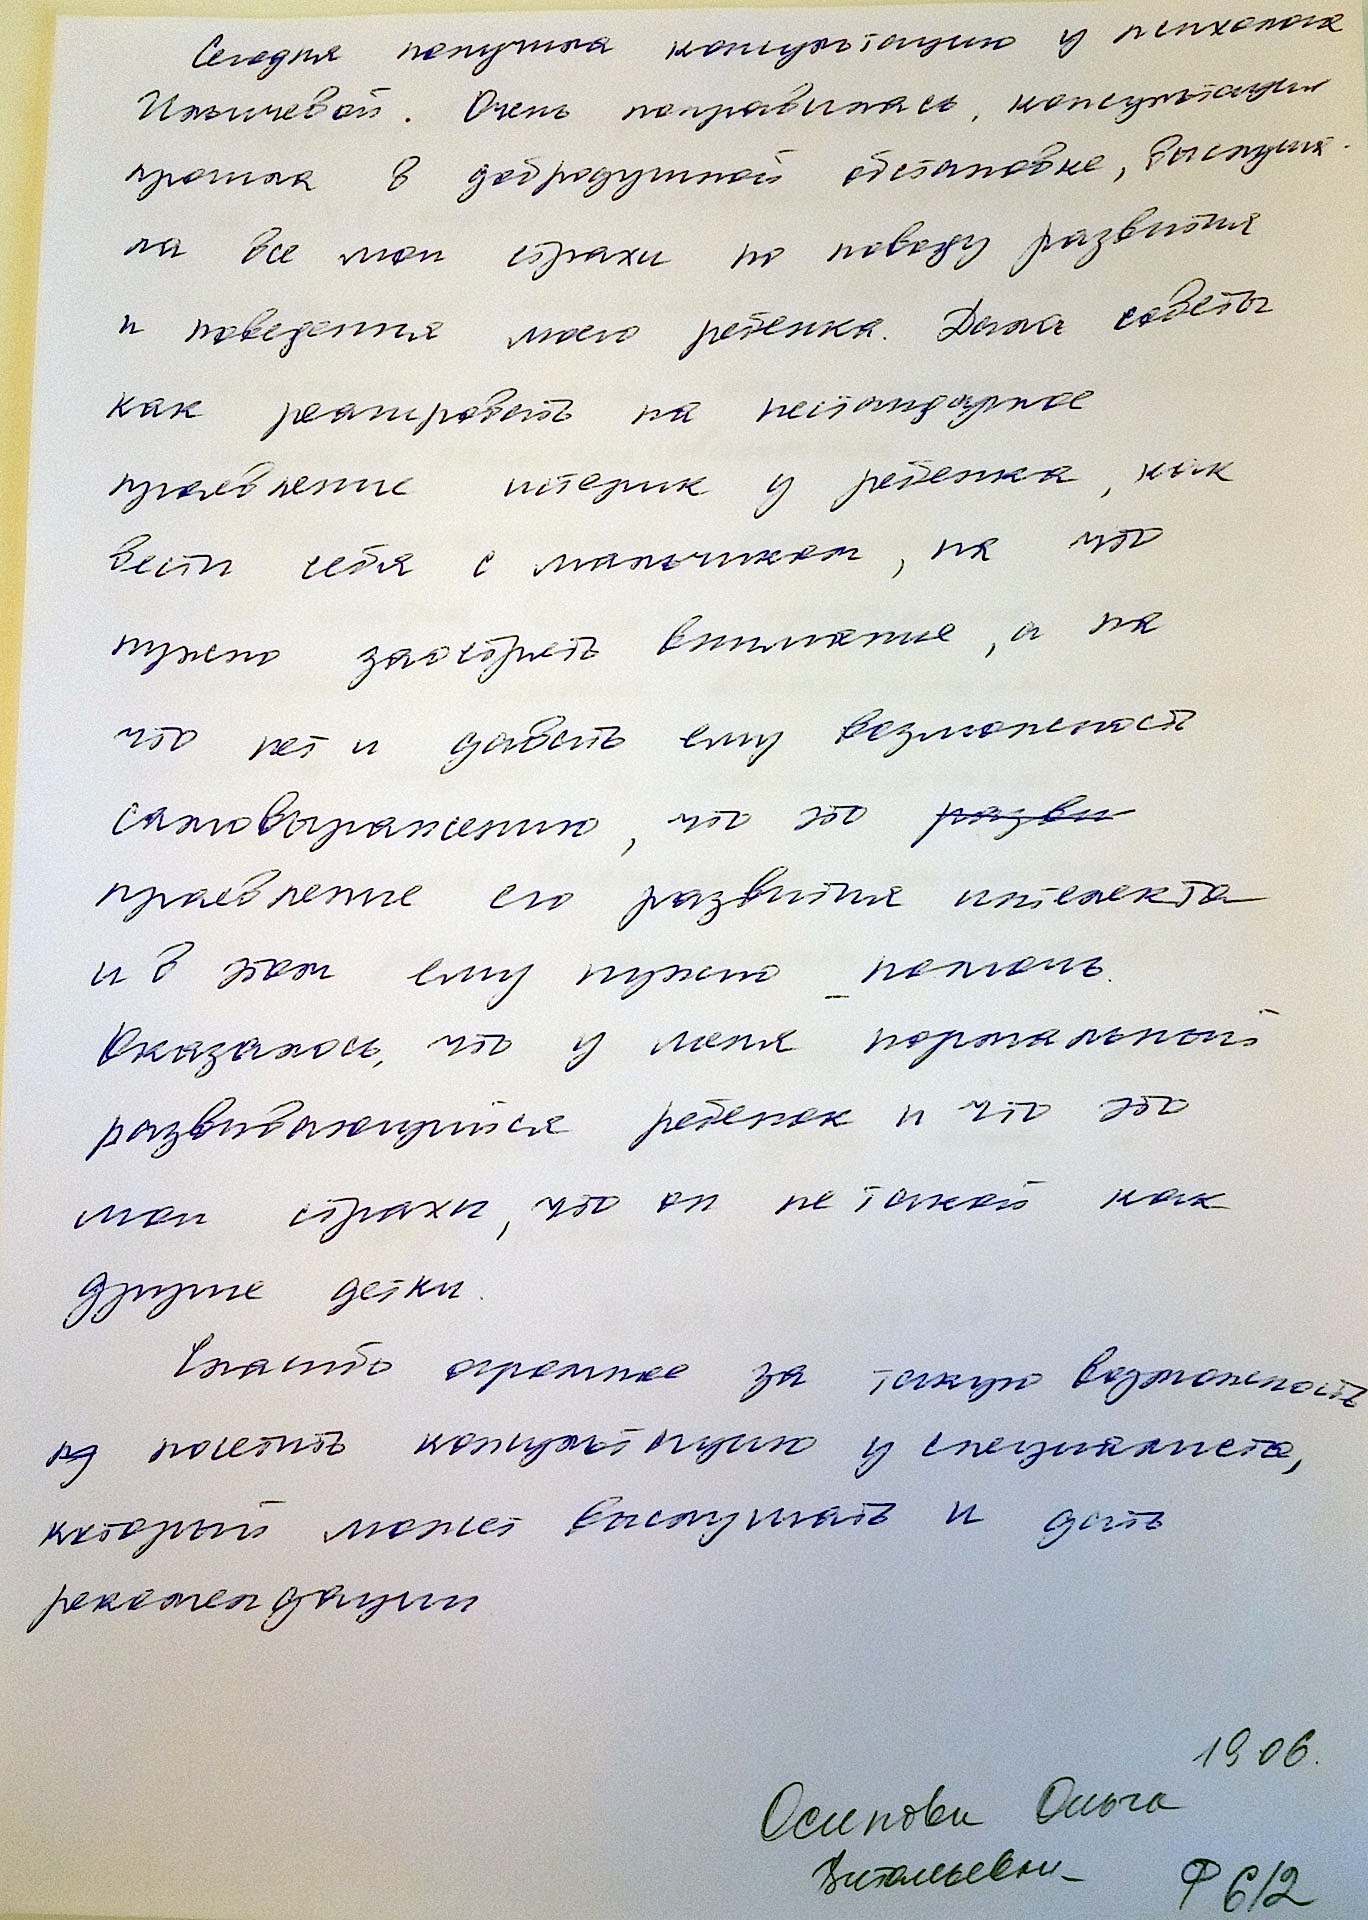 Сегодня получила консультацию у психолога
Ильичевой. Очень понравилась, консультация
прошла в добродушной обстановке, выслуша-
ла все мои страхи по поводу развития
и поведения моего ребенка. Дала советы
как реагировать на нестандарное
проевление истерик у ребенка, как
вести себя с мальчиком, на что
нужно заострять внимание, а на
что нет и давать ему возможность
самовыражению, что это разви
проевление его развития интелекта
и в этом ему нужно помочь.
Оказалось, что у меня нормальный
развивающийся ребенок и что это
мои страхи, что он не такой как
другие детки.
Спасибо огромное за такую возможность
посетить консультацию у специалиста,
который может выслушать и дать
рекомендации
19.06.
Осипова Ольга
Витальевна
Ф 6/2